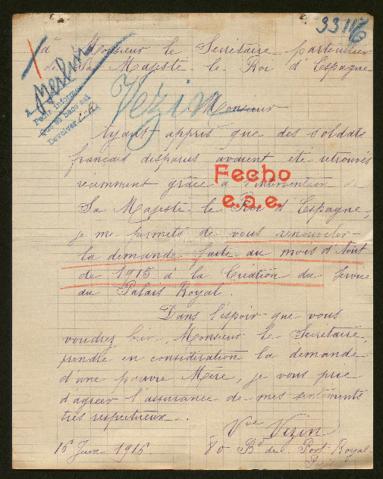 33116
à Monsieur le Secrétaire particulier
de Sa Majesté le Roi d'Espagne
Berlin
Pedir informes
Devolver
Vezin
Monsieur
Ayant appris que des soldats
français disparus avaient été retrouvés
récemment grâce à l'intervention de
Fecho
e.a.e.
Sa Majesté le Roi d'Espagne,
je me permets de vous renouveler
la demande faite au mois d'Aout
de 1915 à la Création du Service
du Palais Royal.
Dans l'espoir que vous
voudrez bien, Monsieur le Secrétaire,
prendre en considération la demande
d'une pauvre Mère, je vous prie
d'agréer l'assurance de mes sentiments
très respectueux.
Vve Vezin
80 Bd de Port Royal